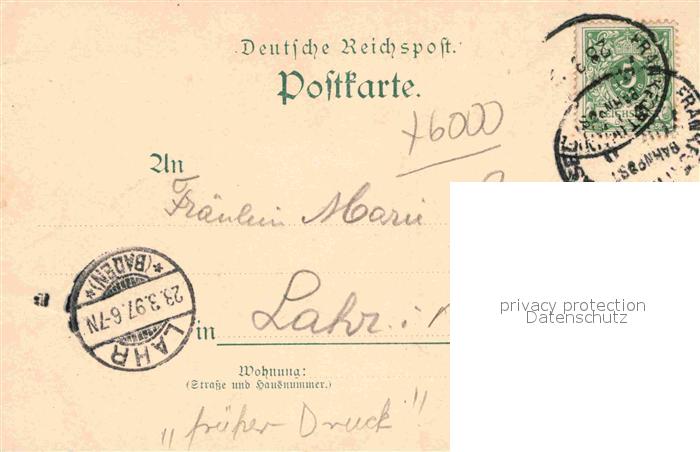 Deutsche Reichspost.
Postkarte.
5
REICHSPOST
FRANKFURT
FRANKFURT
BAHNPOST
+6000
An
Fräulein Marie
LAHR
*(BADEN)*
23.3.97.6-7N
in Lahr i
Wohnung:
(Straße und Hausnummer.)
"früher Druck"!
privacy protection
Datenschutz